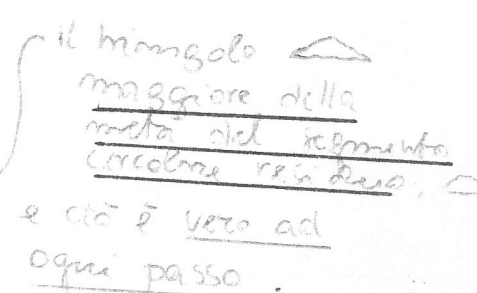 il triangolo
maggiore della
metà del segmento
circolare residuo,
e ciò è vero ad
ogni passo.